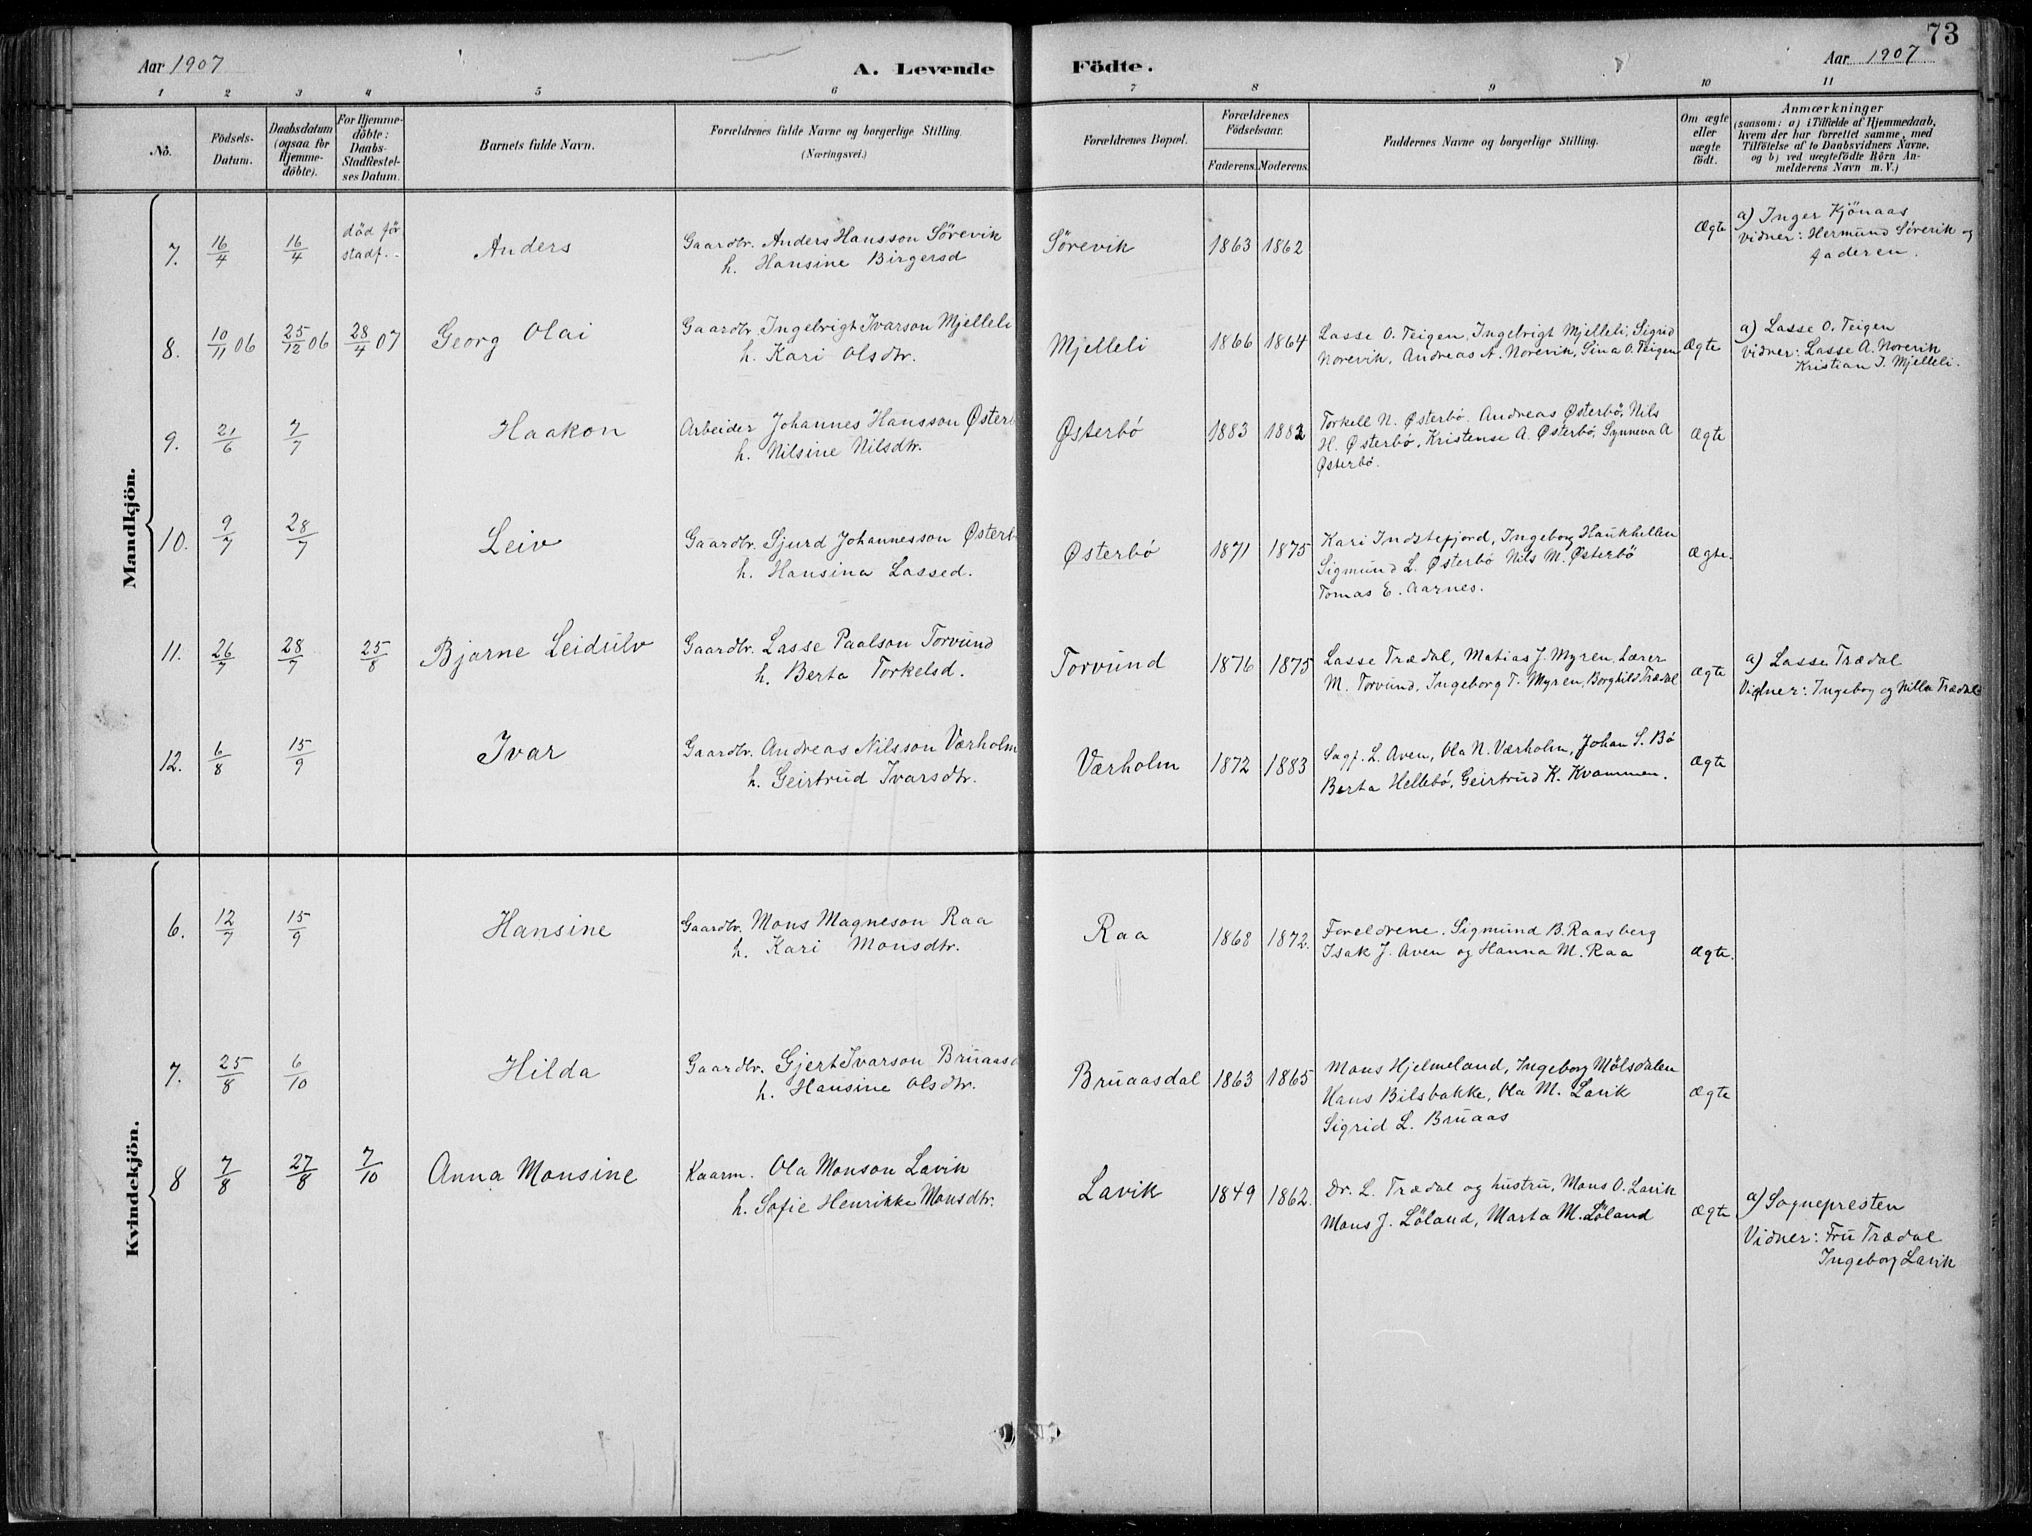 73
Aar 1907
A. Levende
Födte.
Aar 1907
1 2 3 4 5 6 7 8 9 10 11
No.
Födsels-
Datum.
Daabsdatum
(ogsaa for
Hjemme-
döbte).
For Hjemme-
döbte:
Daabs-
Stadfæstel-
ses Datum.
Barnets fulde Navn.
Forældrenes fulde Navne og borgerlige Stilling.
(Næringsvei.)
Forældrenes Bopæl.
Forældrenes
Födselsaar.
Faderens. Moderens.
Faddernes Navne og borgerlige Stilling.
Om ægte
eller
uægte
födt.
Anmærkninger
(saasom: a) i Tilfælde af Hjemmedaab,
hvem der har forrettet samme, med
Tilföielse af to Daabsvidners Navne,
og b) ved uægtefödte Börn An-
melderens Navn m. V.)
Mandkjön.
7. 16/4 16/4 död för
stadf. .
Anders
Gaardbr. Anders Hansson Sörevik
h. Hansine Birgersd
Sörevik 1863 1862 Ægte
a) Inger Kjönaas
Vidner: Hermund Sörevik og
faderen.
8. 10/11 06 25/12 06 28/4 07 Georg Olai
Gaardbr. Ingebrigt Ivarson Mjelleli
h. Kari Olsdtr.
Mjelleli 1866 1864
Lasse O. Teigen, Ingebrigt Mjelleli, Sigrid
Norevik, Andreas A. Norevik, Sina O. Teigen
Ægte
a) Lasse O. Teigen
Vidner: Lasse A. Norevik
Kristian I. Mjelleli.
9. 21/6 7/7 Haakon
Arbeider Johannes Hansson Østerb
h. Nilsine Nilsdtr.
Østerbö 1883 1882
Torkell N. Østerbö, Andreas Østerbö, Nils
H. Østerbø, Kristense A. Østerbö, Synneva A
Østerbö.
Ægte
10. 9/7 28/7 Leiv
Gaardbr. Sjurd Johannesson Østerb
h. Hansina Lassed.
Østerbö 1871 1875
Kari Indstefjord, Ingeborg Haukhellen
Sigmund L. Østerbö Nils M. Østerbö
Tomas E. Aarnes.
Ægte.
11. 26/7 28/7 25/8 Bjarne Leidulv
Gaardbr. Lasse Paalson Torvund
h. Berta Torkelsd.
Torvund 1876 1875
Lasse Trædal, Matias J. Myren, Lærer
M. Torvund, Ingeborg T. Myren, Borghild Trædal
Ægte
a) Lasse Trædal
Vidner: Ingeborg og Nilla Trædal
12. 6/8 15/9 Ivar
Gaardbr. Andreas Nilsson Værholm
h. Geirtrud Ivarsdtr.
Værholm 1872 1883
Sagf. L. Aven, Ola N. Værholm, Johan S. Bö
Berta Hellebö, Geirtrud K. Kvammen.
Ægte
Kvindekjön.
6. 12/7 15/9 Hansine
Gaardbr. Mons Magneson Raa
h. Kari Monsdtr.
Raa 1868 1872.
Foreldrene. Sigmund B. Raasberg
Isak J. Aven og Hanna M. Raa
Ægte.
7. 25/8 6/10 Hilda
Gaardbr. Gjert Ivarson Bruaasd
h. Hansine Olsdtr.
Bruaasdal 1863 1865
Mons Hjelmeland, Ingeborg Mölsdalen
Hans Bilsbakke, Ola M. Lavik
Sigrid L. Bruaas
Ægte
8 7/8 27/8 7/10 Anna Monsine
Kaarm. Ola Monson Lavik
h. Sofie Henrikke Monsdtr.
Lavik 1849 1862.
Dr. L. Trædal og hustru, Mons O. Lavik
Mons J. Löland, Marta M. Löland
Ægte
a) Sognepresten
Vidner: Fru Trædal
Ingeborg Lavik